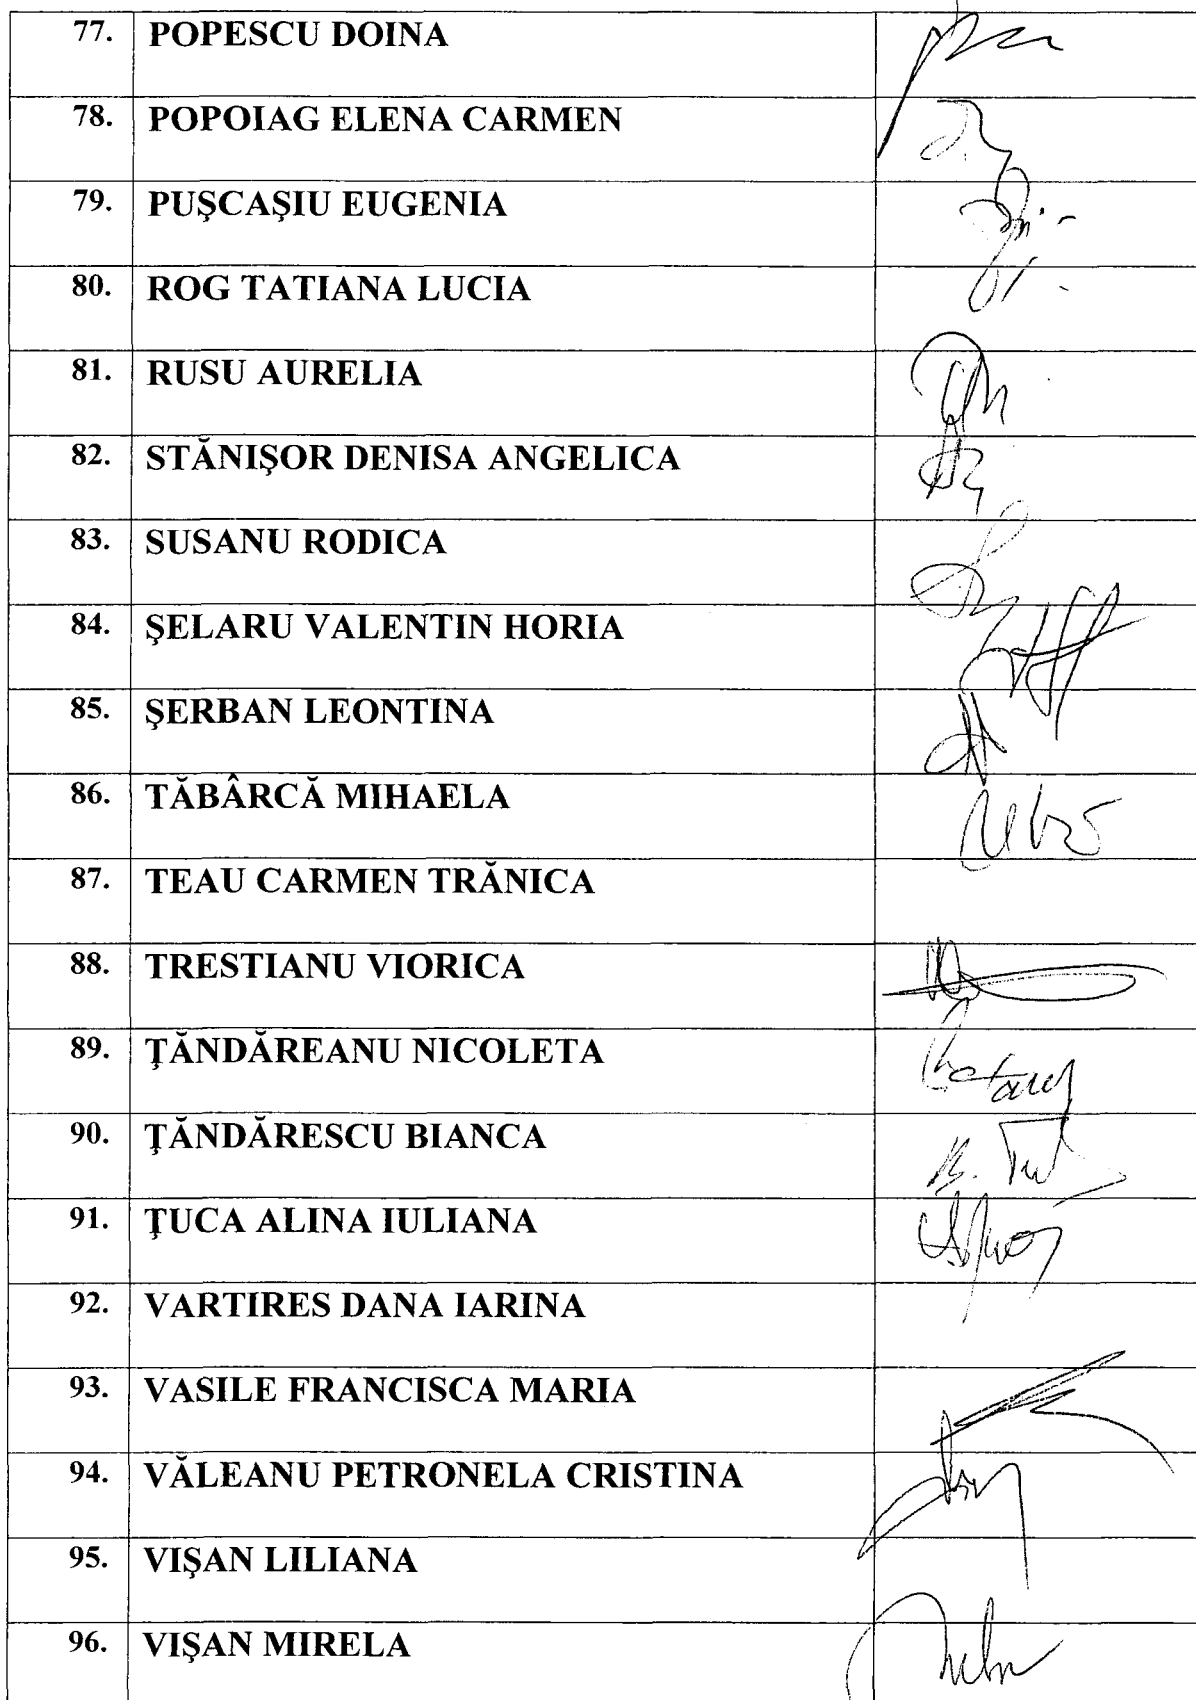 77. POPESCU DOINA
78. POPOIAG ELENA CARMEN
79. PUŞCAŞIU EUGENIA
80. ROG TATIANA LUCIA
81. RUSU AURELIA
82. STĂNIŞOR DENISA ANGELICA
83. SUSANU RODICA
84. ŞELARU VALENTIN HORIA
85. ŞERBAN LEONTINA
86. TĂBÂRCĂ MIHAELA
87. TEAU CARMEN TRĂNICA
88. TRESTIANU VIORICA
89. ŢĂNDĂREANU NICOLETA
90. ŢĂNDĂRESCU BIANCA
91. ŢUCA ALINA IULIANA
92. VARTIRES DANA IARINA
93. VASILE FRANCISCA MARIA
94. VĂLEANU PETRONELA CRISTINA
95. VIŞAN LILIANA
96. VIŞAN MIRELA